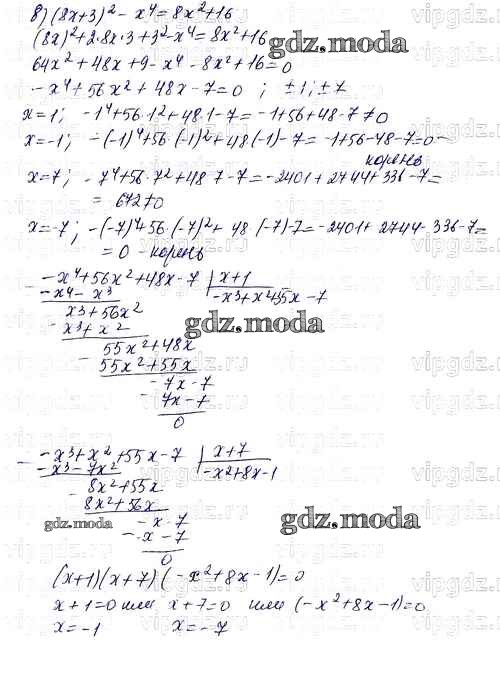 8) (8x+3)² - x⁴ = 8x²+16
(8x)²+2·8x·3+3²-x⁴=8x²+16
gdz.moda
64x²+48x+9-x⁴-8x²+16=0
-x⁴+56x²+48x-7=0 ; ±1; ±7
x=1; -1⁴+56·1²+48·1-7=-1+56+48-7≠0
x=-1; -(-1)⁴+56·(-1)²+48(-1)-7=-1+56-48-7=0-
корень
x=7; -7⁴+56·7²+48·7-7=-2401+2744+336-7=
= 672≠0
x=-7; -(-7)⁴+56·(-7)²+48(-7)-7=-2401+2744-336-7=
= 0 - корень
-x⁴+56x²+48x-7 | x+1
-x⁴-x³ -x³+x²+55x-7
x³+56x²
x³+x²
gdz.moda
55x²+48x
55x²+55x
-7x-7
-7x-7
0
-x³+x²+55x-7 | x+7
-x³-7x² -x²+8x-1
8x²+55x
8x²+56x
gdz.moda
-x-7
gdz.moda
-x-7
0
(x+1)(x+7)(-x²+8x-1)=0
x+1=0 или x+7=0 или (-x²+8x-1)=0
x=-1 x=-7